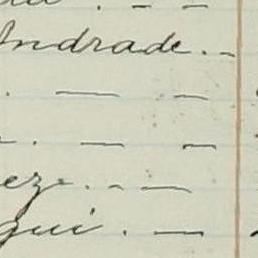 Andrade. -
. — -
. — —
ez. - —
gui. — —